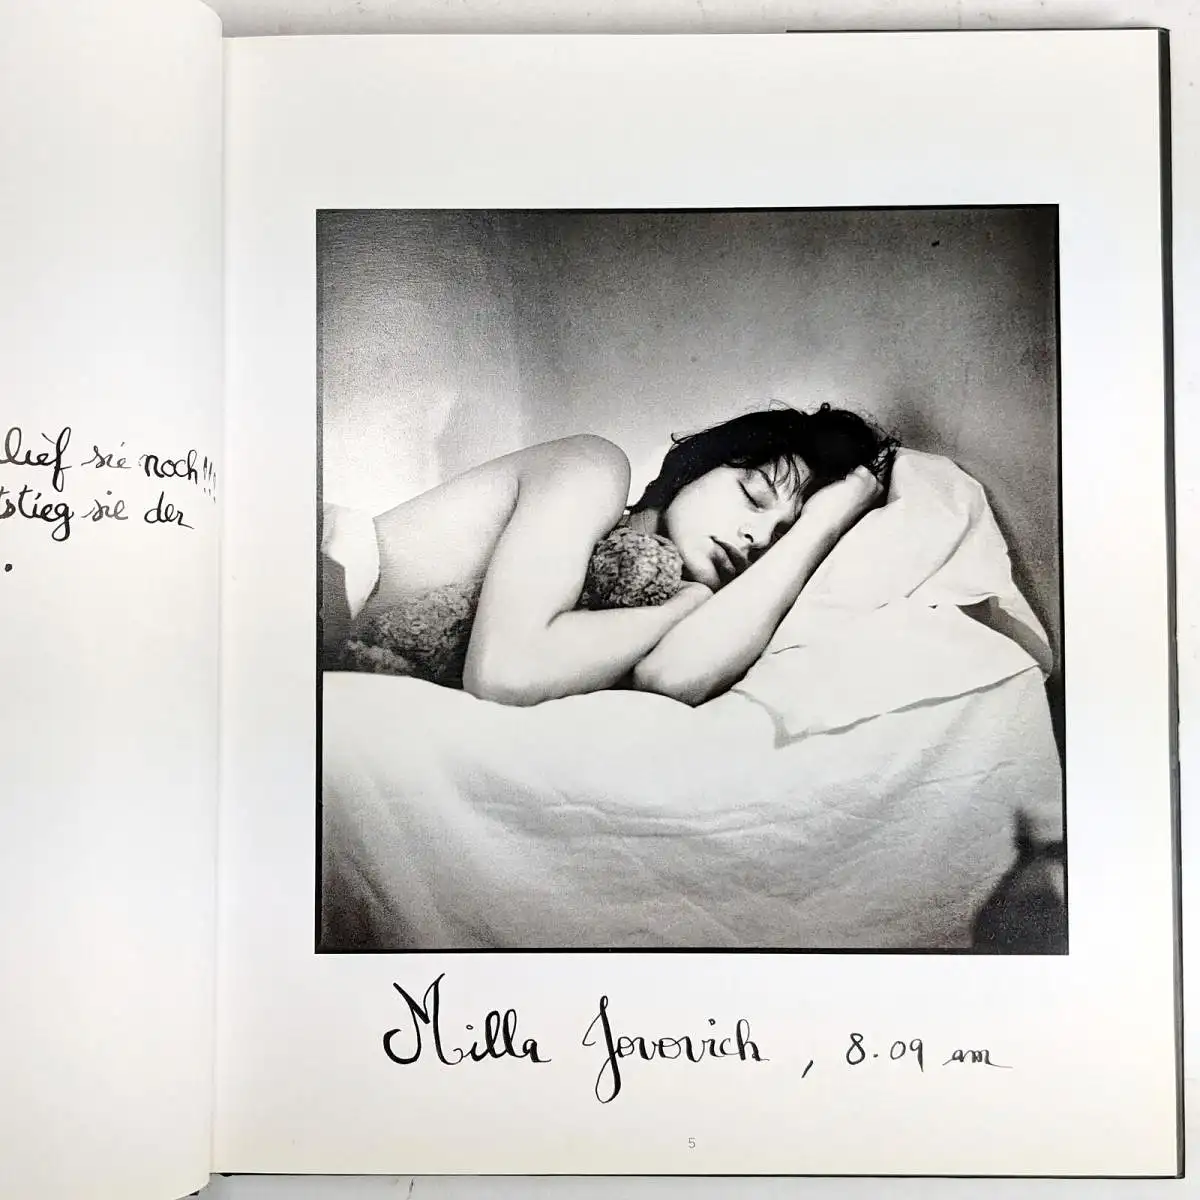 lief sie noch!!!
tstieg sie der
.
Milla Jovovich, 8.09 am
5